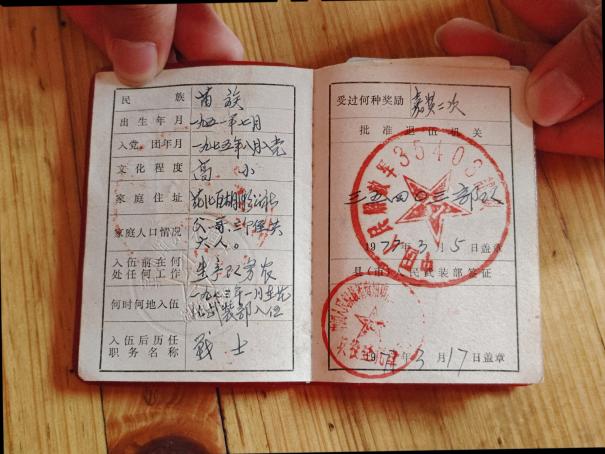 民族 苗族
出生年月 一九五一年七月
入党、团年月 一九七五年八月入党
文化程度 高小
家庭住址
家庭人口情况 父、哥、
六人。
入伍前在何处任何工作 生产队务农
何时何地入伍 一九七三年一月在
武装部入伍
入伍后历任职务名称 战士
受过何种奖励 嘉奖二次
批准退伍机关
三五四〇三部队
1977年3月5日盖章
县(市)人民武装部签证
1977年3月17日盖章